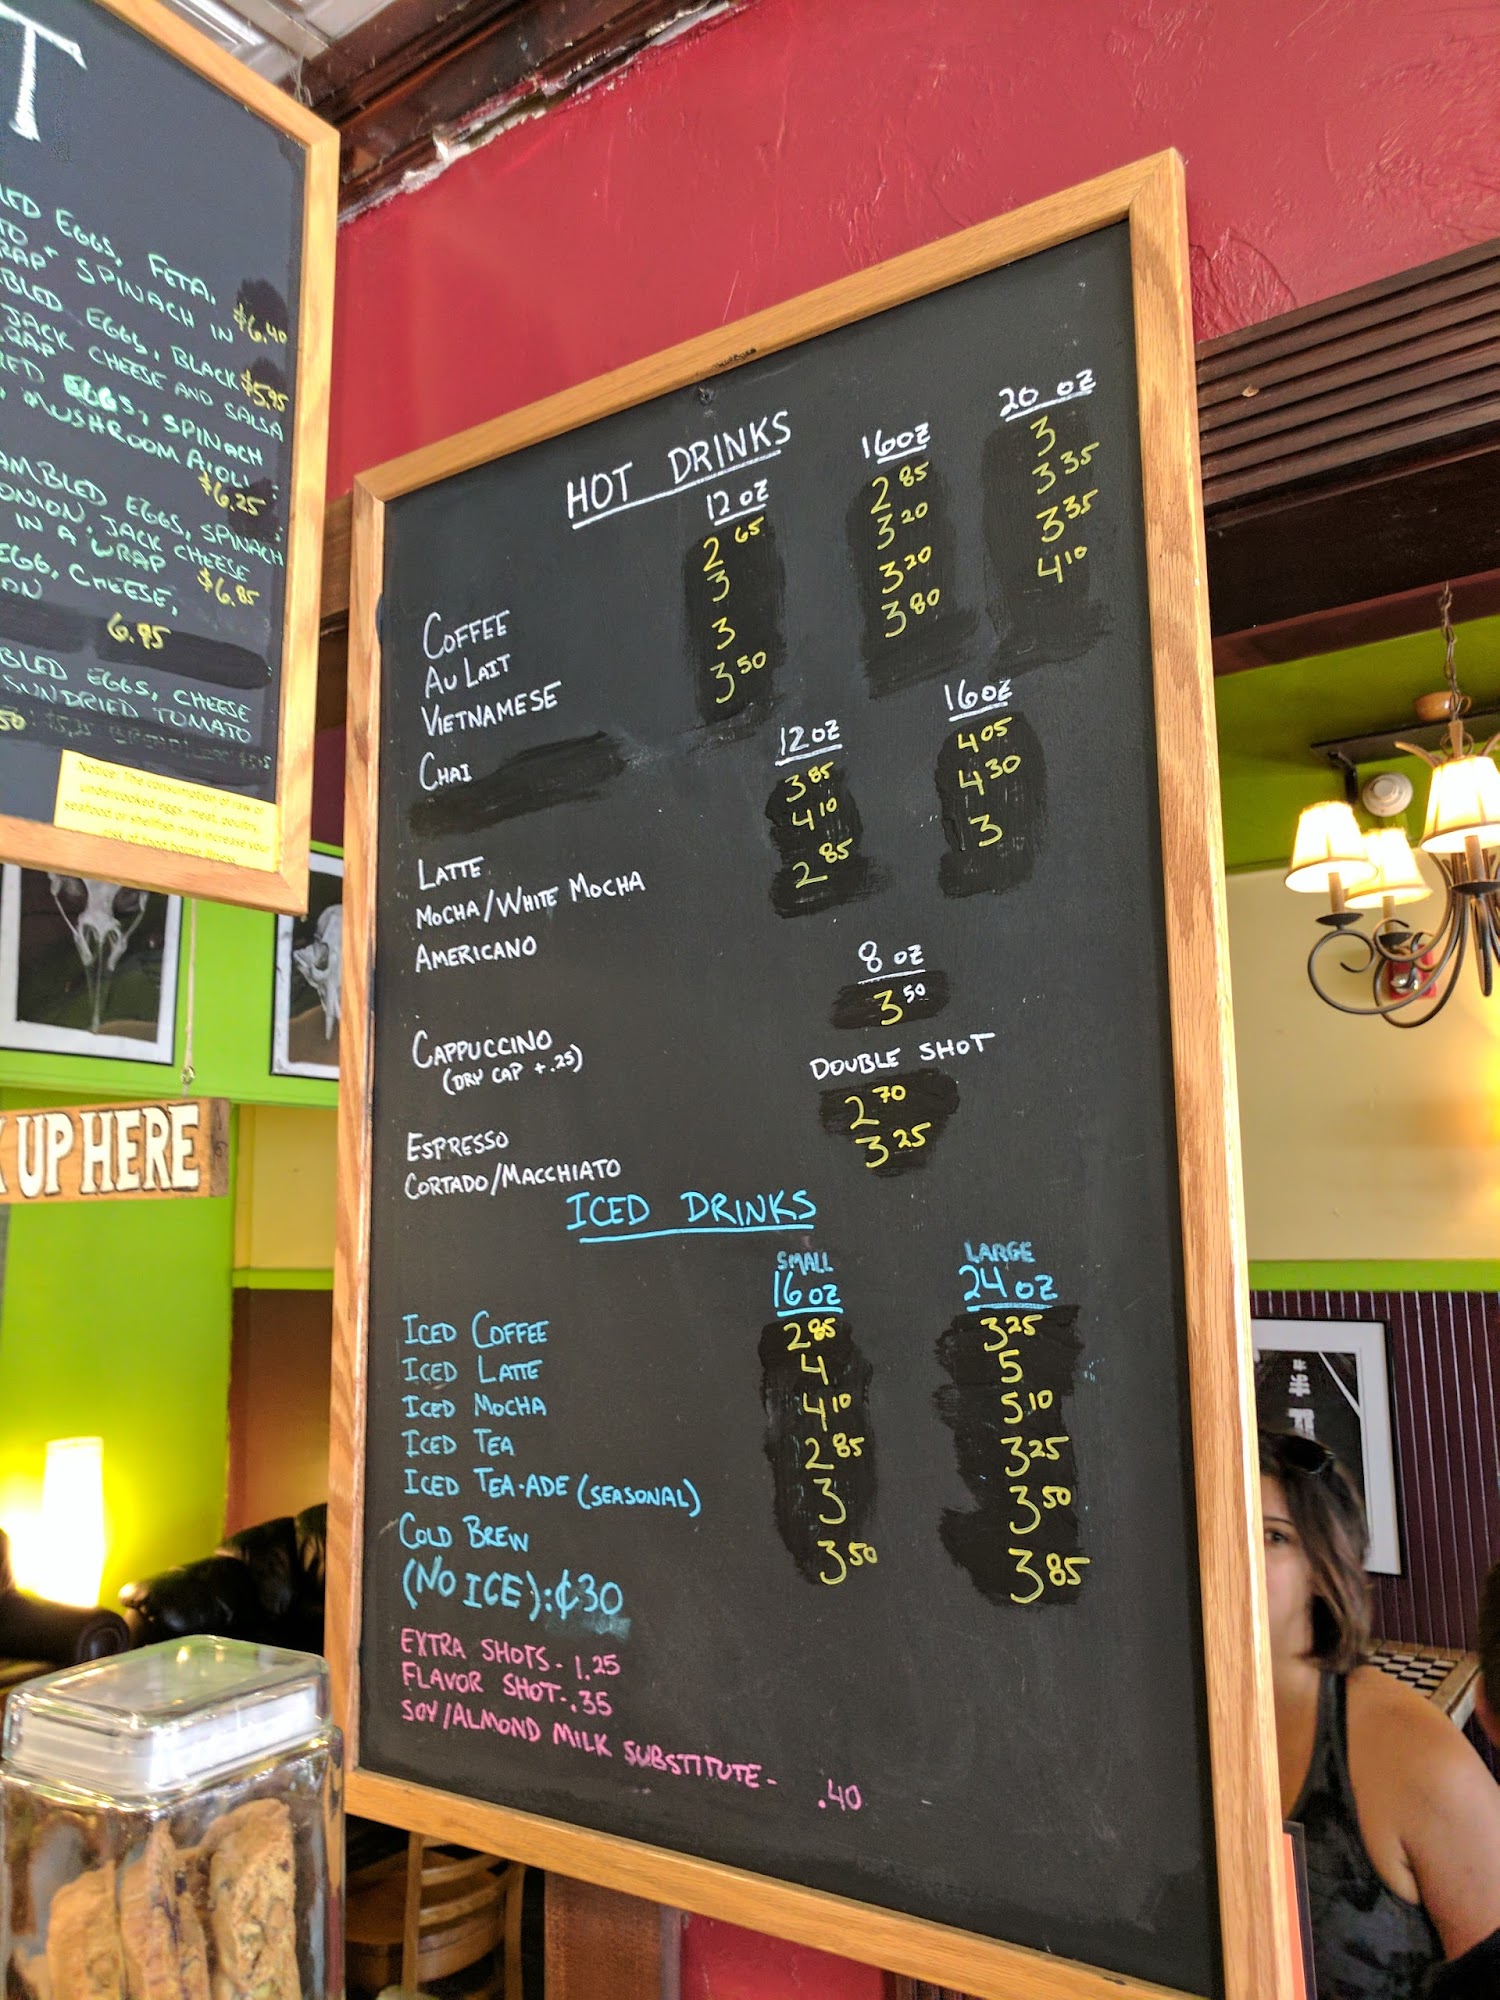 T
LED EGGS, FETA,
TO + SPINACH IN
RAP $6.40
BLED EGGS, BLACK
JACK CHEESE AND SALSA $5.95
RAP
EGGS, SPINACH
, MUSHROOM AIOLI: $6.25
AMBLED EGGS, SPINACH
ONION, JACK CHEESE
IN A WRAP $6.85
EGG, CHEESE,
ON 6.95
BLED EGGS, CHEESE
SUNDRIED TOMATO
50
Notice: The consumption of raw or
undercooked eggs, meat, poultry,
seafood or shellfish may increase your
risk of food borne illness.
UP HERE
HOT DRINKS
12 OZ 16 OZ 20 OZ
COFFEE 2 65 2 85 3
AU LAIT 3 3 20 3 35
VIETNAMESE 3 3 20 3 35
CHAI 3 50 3 80 4 10
12 OZ 16 OZ
LATTE 3 85 4 05
MOCHA/WHITE MOCHA 4 10 4 30
AMERICANO 2 85 3
8 OZ
CAPPUCCINO 3 50
(DRY CAP + .25)
DOUBLE SHOT
ESPRESSO 2 70
CORTADO/MACCHIATO 3 25
ICED DRINKS
SMALL LARGE
16 OZ 24 OZ
ICED COFFEE 2 85 3 25
ICED LATTE 4 5
ICED MOCHA 4 10 5 10
ICED TEA 2 85 3 25
ICED TEA-ADE (SEASONAL) 3 3 50
COLD BREW 3 50 3 85
(NO ICE):¢30
EXTRA SHOTS- 1.25
FLAVOR SHOT-.35
SOY/ALMOND MILK SUBSTITUTE- .40